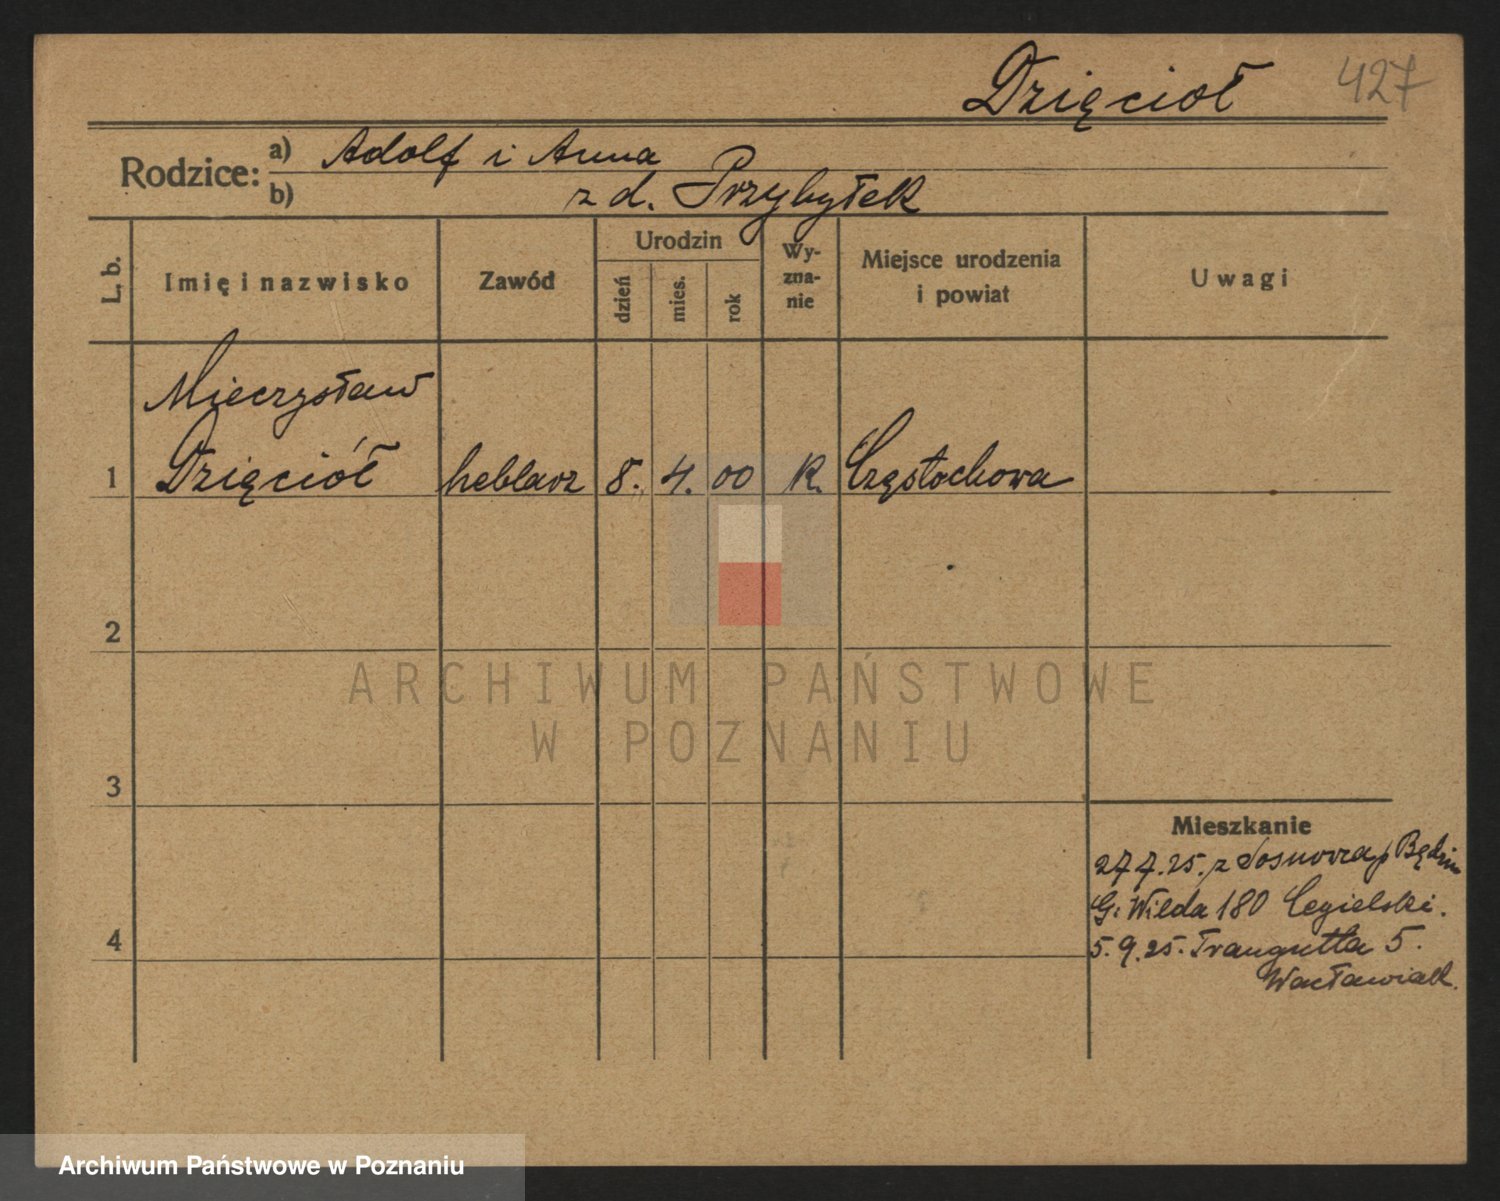 Dzięcioł 427
Rodzice: a) Adolf i Anna
b) z d. Przybyłek
L. b.
Imię i nazwisko
Zawód
Urodzin
dzień
mies.
rok
Wy-
zna-
nie
Miejsce urodzenia
i powiat
Uwagi
Mieczysław
1 Dzięciół heblarz 8. 4. 00 R. Częstochowa
2
3
4
Mieszkanie
27.7.25. z Sosnowca p Będzin
G. Wilda 180 Cegielski.
5.9.25. Traugutta 5.
Wacławiak.
ARCHIWUM PAŃSTWOWE
W POZNANIU
Archiwum Państwowe w Poznaniu